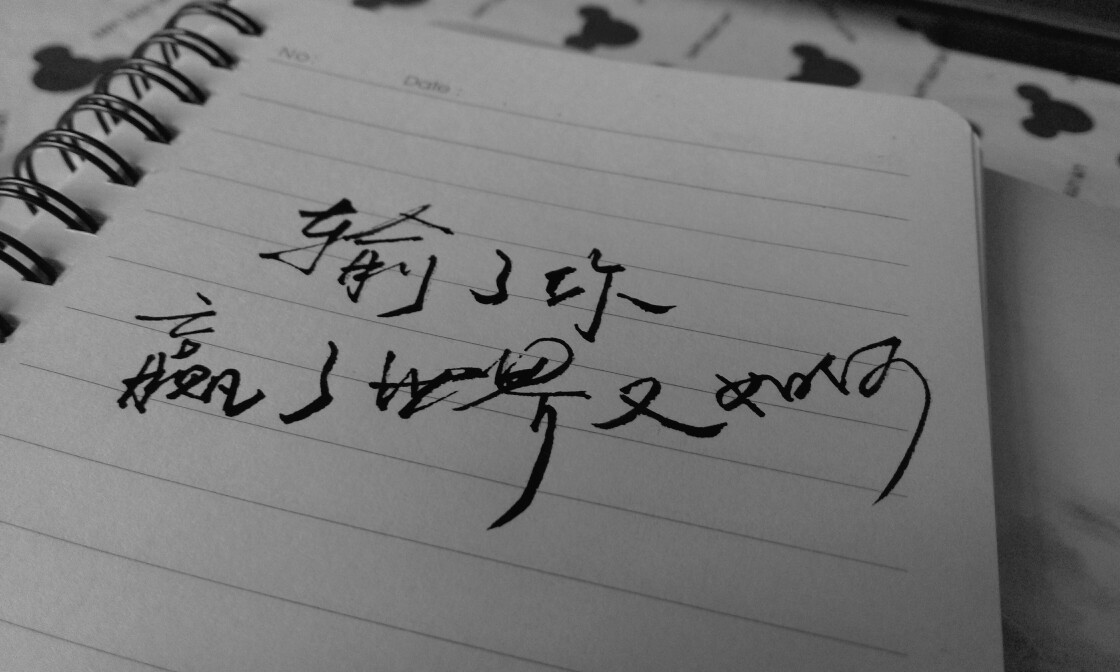 No:
Date:
输了你
赢了世界又如何